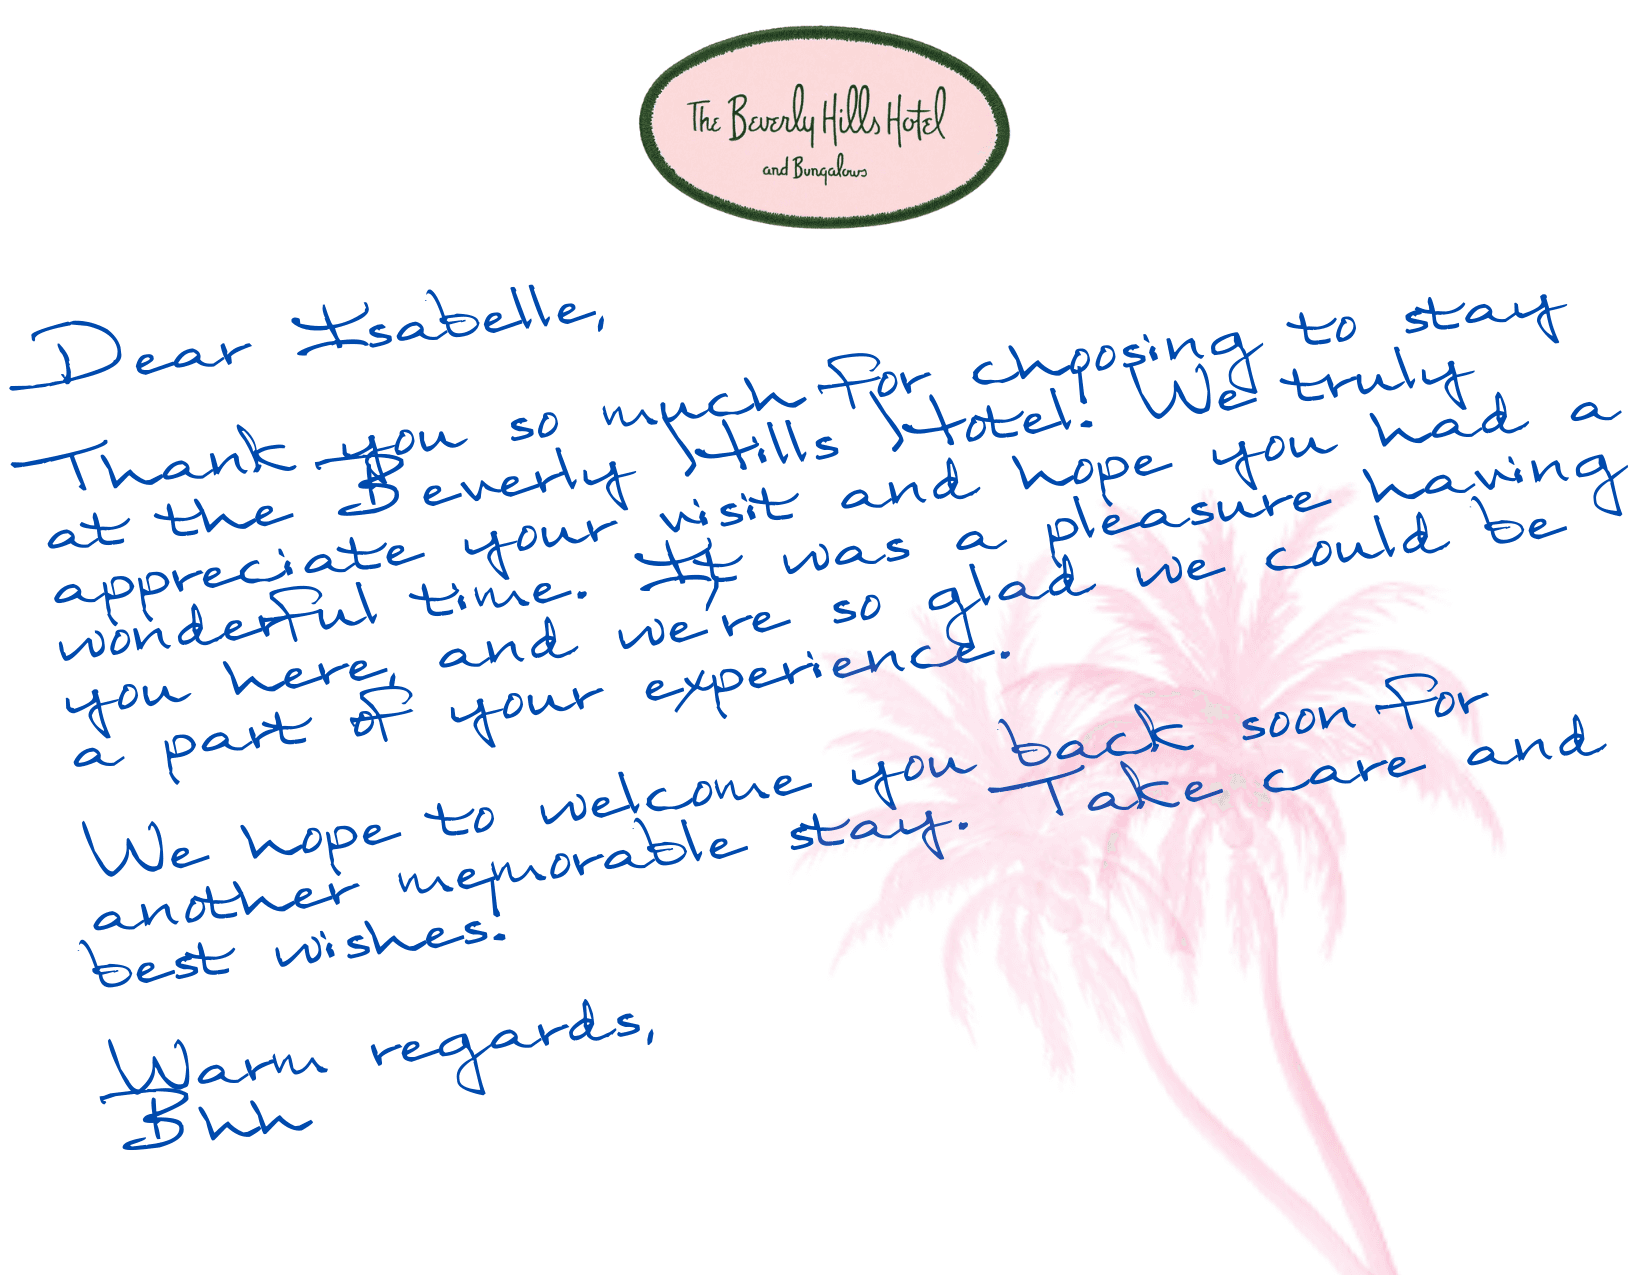 The Beverly Hills Hotel
and Bungalows
Dear Isabelle,
Thank you so much for choosing to stay
at the Beverly Hills Hotel! We truly
appreciate your visit and hope you had a
wonderful time. It was a pleasure having
you here, and we're so glad we could be
a part of your experience.
We hope to welcome you back soon for
another memorable stay. Take care and
best wishes!
Warm regards,
Bhh